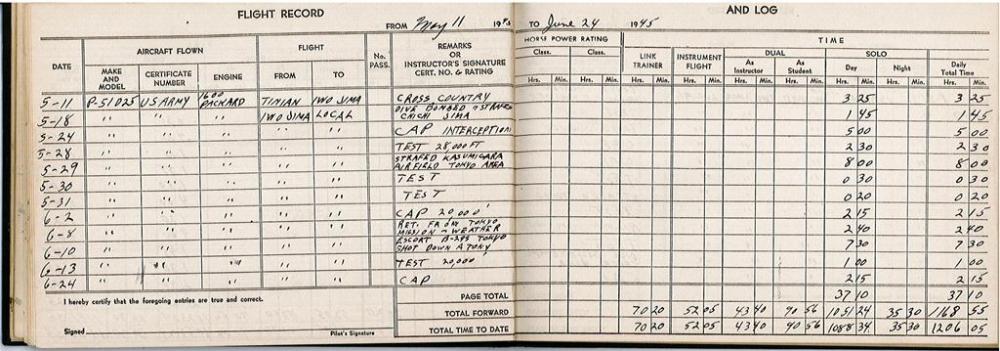 FLIGHT RECORD AND LOG
FROM May 11 1945 TO June 24 1945
DATE AIRCRAFT FLOWN FLIGHT No. PASS. REMARKS OR INSTRUCTOR'S SIGNATURE CERT. NO. & RATING HORSE POWER RATING TIME
MAKE AND MODEL CERTIFICATE NUMBER ENGINE FROM TO Class. Class. LINK TRAINER INSTRUMENT FLIGHT DUAL SOLO Daily Total Time
As Instructor As Student Day Night
Hrs. Min. Hrs. Min. Hrs. Min. Hrs. Min. Hrs. Min. Hrs. Min. Hrs. Min. Hrs. Min. Hrs. Min.
5-11 P-51D25 US ARMY 1600 PACKARD TINIAN IWO JIMA CROSS COUNTRY 3 25 3 25
5-18 " " " IWO JIMA LOCAL DIVE BOMBED & STRAFED CHICHI JIMA 1 45 1 45
5-24 " " " " " CAP INTERCEPTION 5 00 5 00
5-28 " " " " " TEST 28,000 FT 2 30 2 30
5-29 " " " " " STRAFED KASUMIGARA AIRFIELD TOKYO AREA 8 00 8 00
5-30 " " " " " TEST 0 30 0 30
5-31 " " " " " TEST 0 20 0 20
6-2 " " " " " CAP 20,000' 2 15 2 15
6-8 " " " " " RET. FROM TOKYO MISSION - WEATHER 2 40 2 40
6-10 " " " " " ESCORT B-29S TOKYO SHOT DOWN A TONY 7 30 7 30
6-13 " " " " " TEST 20,000' 1 00 1 00
6-24 " " " " " CAP 2 15 2 15
I hereby certify that the foregoing entries are true and correct. PAGE TOTAL 37 10 37 10
TOTAL FORWARD 70 20 52 05 43 40 40 56 1051 24 35 30 1168 55
Signed Pilot's Signature TOTAL TIME TO DATE 70 20 52 05 43 40 40 56 1088 34 35 30 1206 05